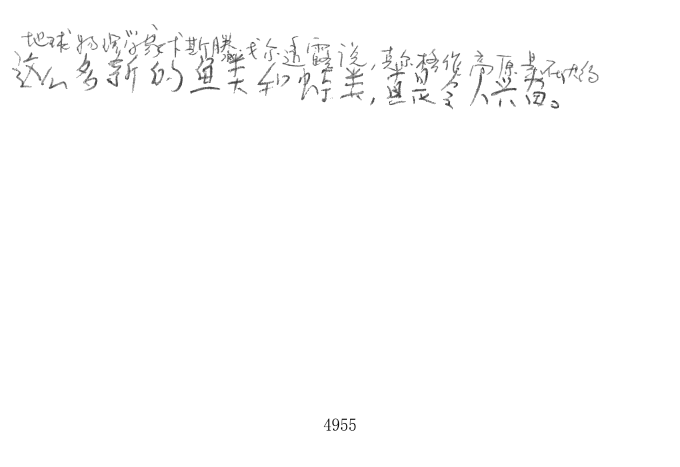 地球物理学家卡斯滕·戈尔透露说,莫尔格作高原是不错的
这么多新的鱼类和虾类,真是令人兴奋。
4955